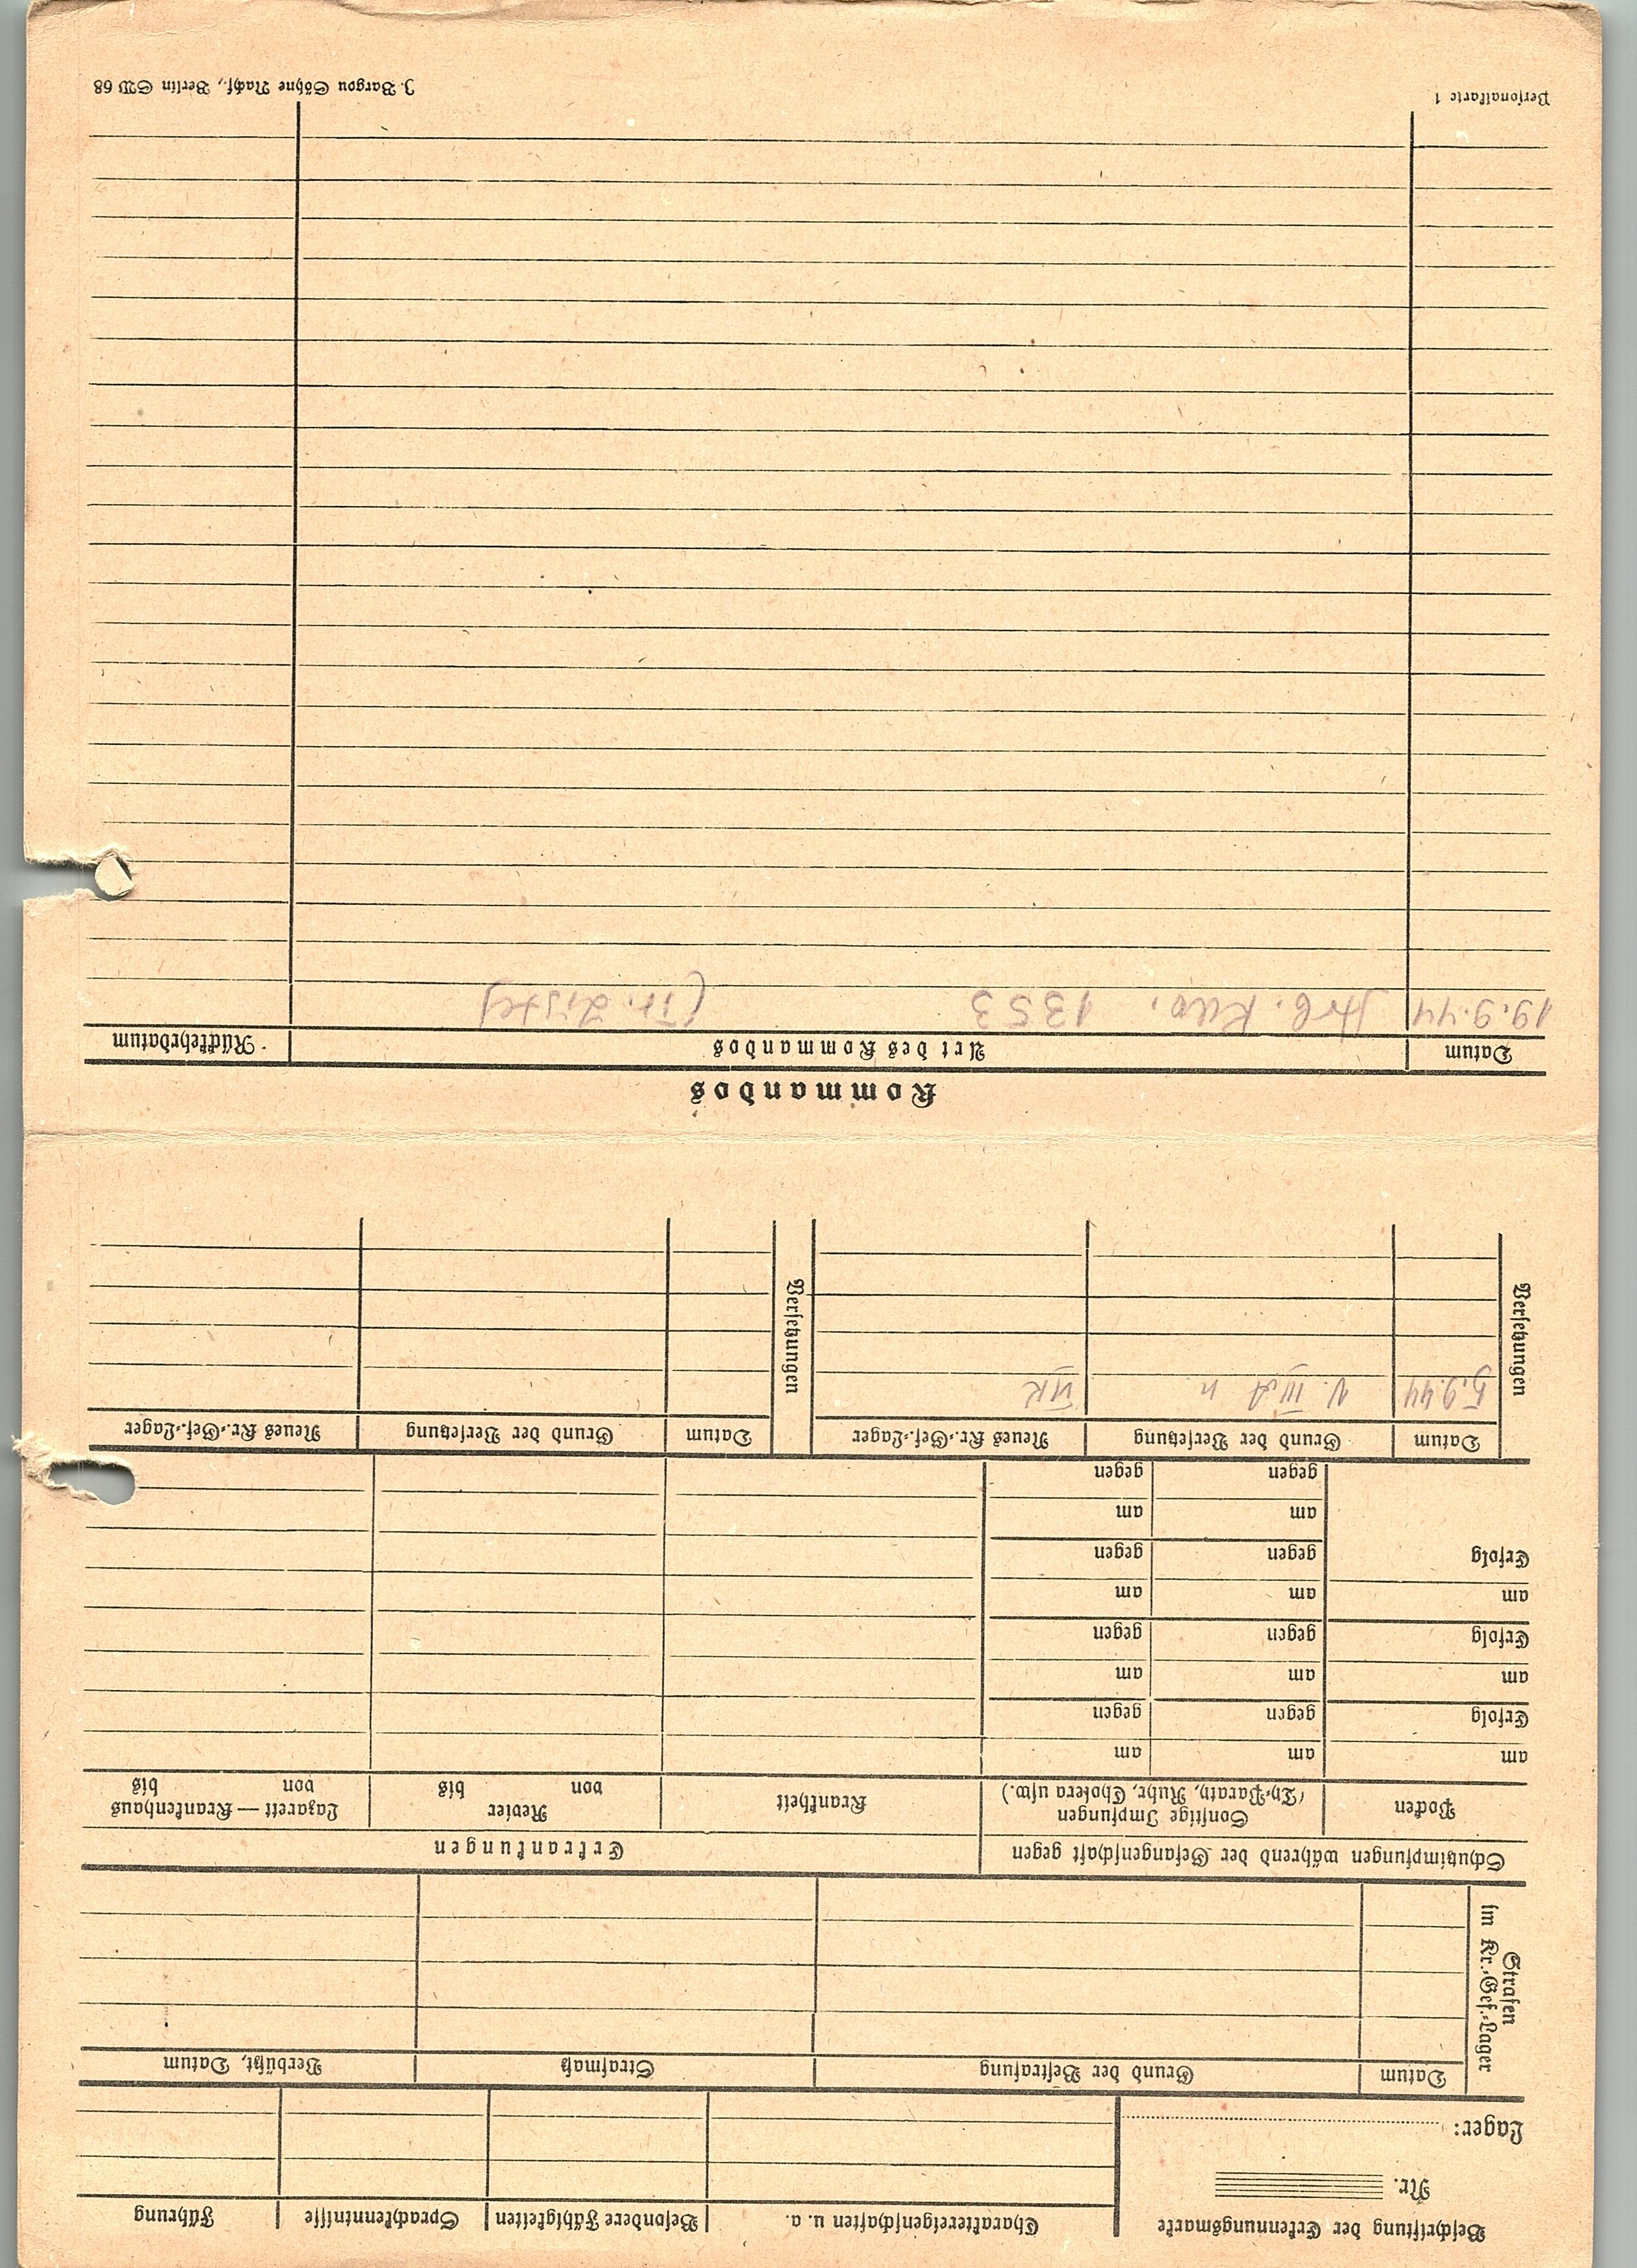 Beschriftung der Erkennungsmarke
Nr.
Lager:
Charaktereigenschaften u. a.
Besondere Fähigkeiten
Sprachkenntnisse
Führung
Strafen
im Kr.-Gef.-Lager
Datum
Grund der Bestrafung
Strafmaß
Verbüßt, Datum
Schutzimpfungen während der Gefangenschaft gegen
Erkrankungen
Pocken
Sonstige Impfungen
(Ty-Paraty, Ruhr, Cholera usw.)
Krankheit
Revier
von bis
Lazarett — Krankenhaus
von bis
am am am
Erfolg gegen gegen
am am am
Erfolg gegen gegen
am am am
Erfolg gegen gegen
am am
gegen gegen
Versetzungen
Datum
Grund der Versetzung
Neues Kr.-Gef.-Lager
5.9.44 V. III A n II K
Versetzungen
Datum
Grund der Versetzung
Neues Kr.-Gef.-Lager
Kommandos
Datum
Art des Kommandos
Rückkehrdatum
19.9.44 Arb. Kdo. 1353 (Tr. Liste)
Personalkarte 1
J. Bargou Söhne Nachf., Berlin SW 68